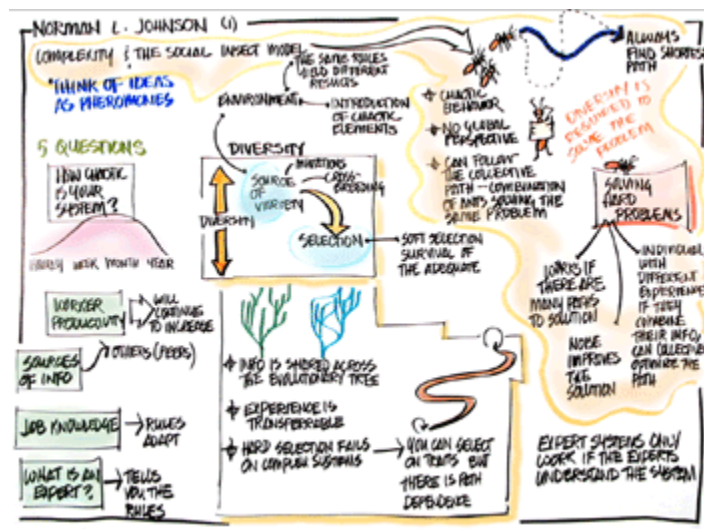 NORMAN L. JOHNSON (1)
COMPLEXITY & THE SOCIAL INSECT MODEL
"THINK OF IDEAS
AS PHEROMONES
THE SAME RULES
YIELD DIFFERENT
RESULTS
ENVIRONMENT
INTRODUCTION
OF CHAOTIC
ELEMENTS
ALWAYS
FIND SHORTEST
PATH
CHAOTIC
BEHAVIOR
NO GLOBAL
PERSPECTIVE
CAN FOLLOW
THE COLLECTIVE
PATH - COMBINATION
OF ANTS SOLVING THE
SAME PROBLEM
DIVERSITY IS
REQUIRED TO
SOLVE THE
PROBLEM
5 QUESTIONS
HOW CHAOTIC
IS YOUR
SYSTEM?
WEEK MONTH YEAR
DIVERSITY
DIVERSITY
SOURCE
OF
VARIETY
MUTATIONS
CROSS-
BREEDING
SELECTION
SOFT SELECTION
SURVIVAL
OF THE ADEQUATE
SOLVING
HARD
PROBLEMS
WORKS IF
THERE ARE
MANY PATHS
TO SOLUTION
NOISE
IMPROVES
THE
SOLUTION
INDIVIDUAL
WITH
DIFFERENT
EXPERIENCE
IF THEY
COMBINE
THEIR INFO,
CAN COLLECTIVE
OPTIMIZE THE
PATH
WORKER
PRODUCTIVITY
WILL
CONTINUE
TO INCREASE
SOURCES
OF INFO
OTHERS (PEERS)
JOB KNOWLEDGE
RULES
ADAPT
WHAT IS AN
EXPERT?
TELLS
YOU THE
RULES
INFO IS SHARED ACROSS
THE EVOLUTIONARY TREE
EXPERIENCE IS
TRANSFERRABLE
HARD SELECTION FAILS
ON COMPLEX SYSTEMS
YOU CAN SELECT
ON TRAITS BUT
THERE IS PATH
DEPENDENCE
EXPERT SYSTEMS ONLY
WORK IF THE EXPERTS
UNDERSTAND THE SYSTEM